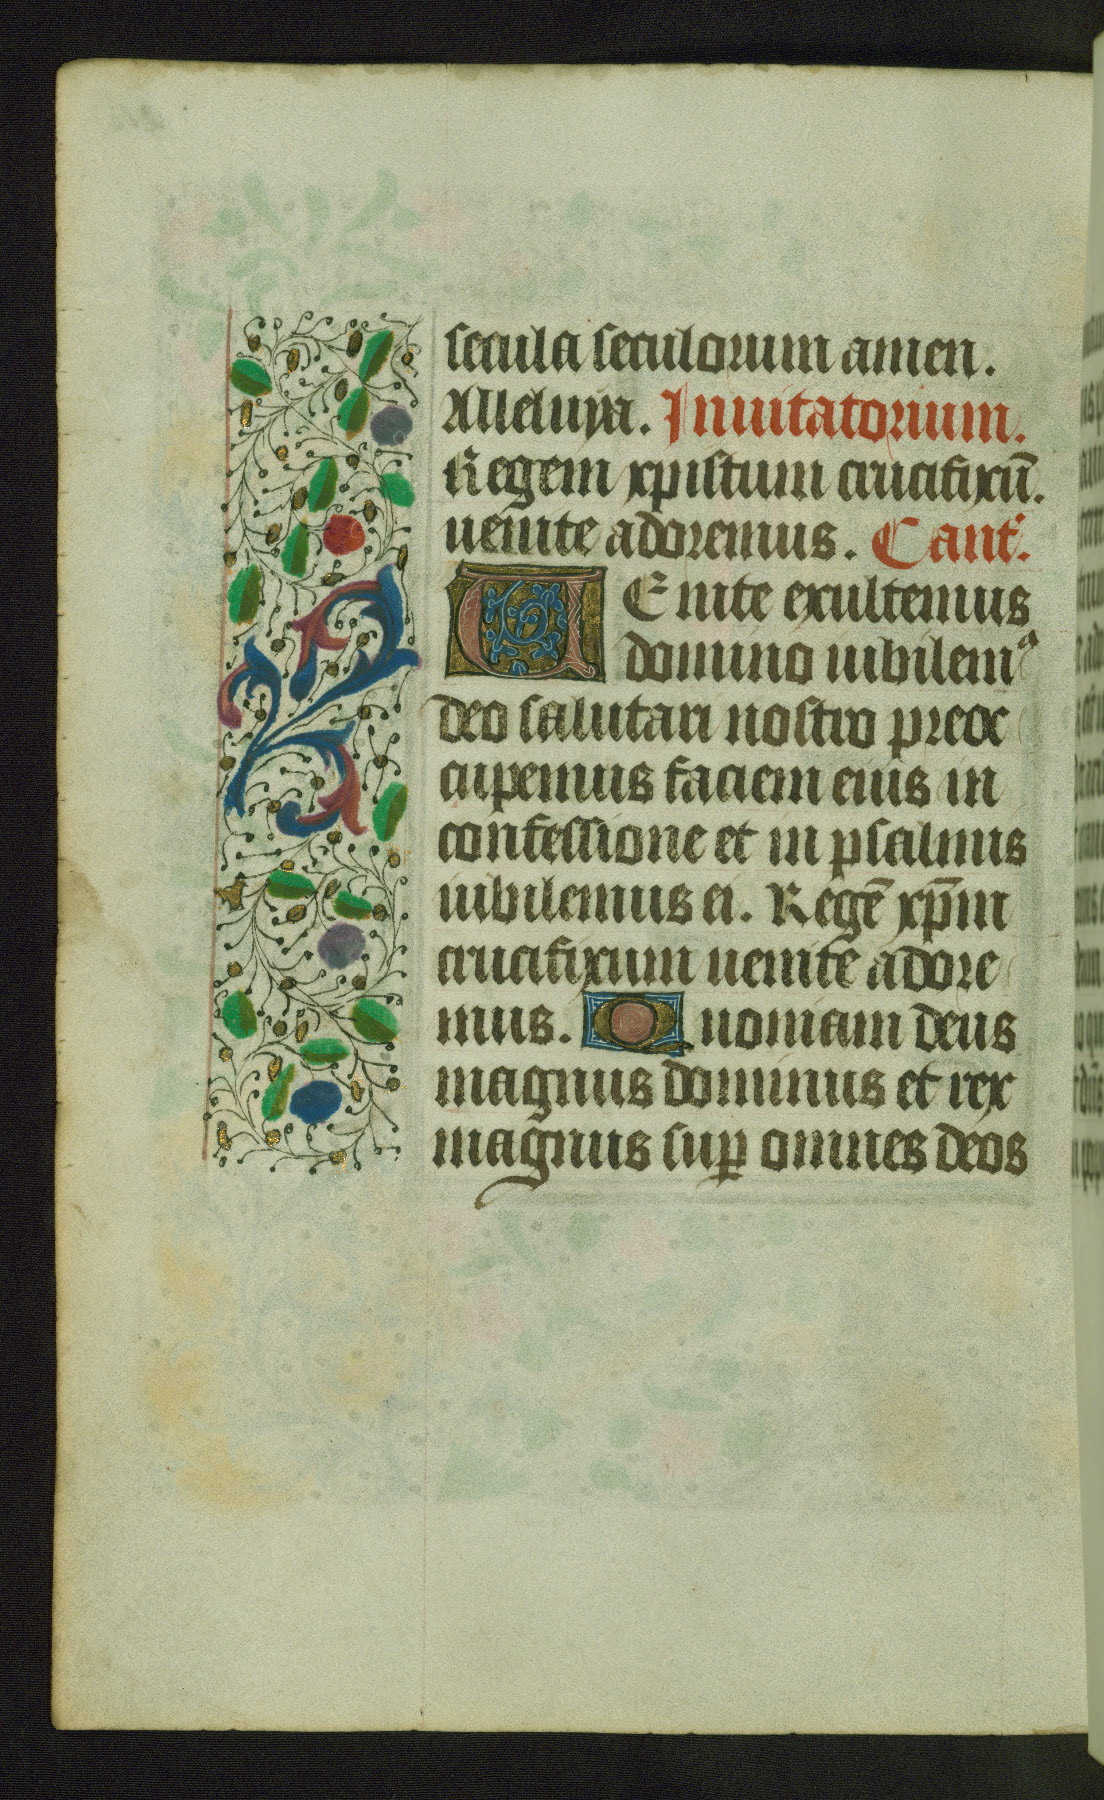 secula seculorum amen.
Alleluya. Inuitatorium.
Regem xpistum crucifixū.
uenite adoremus. Cant̄.
UEnite exultemus
domino iubilem⁹
deo salutari nostro preoc
cupemus faciem eius in
confessione et in psalmis
iubilemus ei. Regē xp̄m
crucifixum uenite adore
mus. Quoniam deus
magnus dominus et rex
magnus suꝑ omnes deos